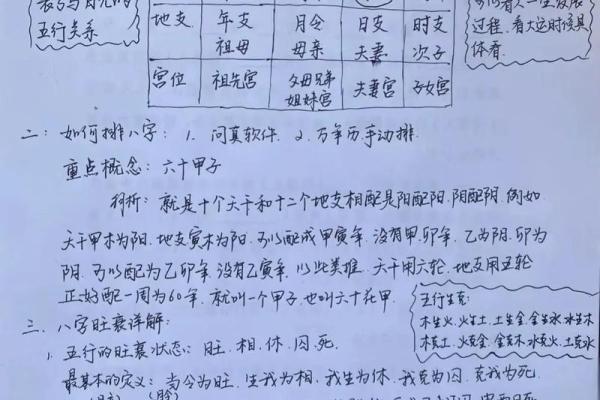 五行关系
过程,看大运时候具
体看.
地支 年支 月令 日支 时支
祖母 母亲 夫妻 次子
宫位 祖先宫 父母兄弟 夫妻宫 子女宫
姐妹宫
二: 如何排八字: 1. 问真软件. 2. 万年历手动排.
重点概念: 六十甲子
解析: 就是十个天干和十二个地支相配是阳配阳.阴配阴.例如
天干甲木为阳.地支寅木为阳.可以配成甲寅年.没有甲卯年.乙为阴.卯为
阴.可以配为乙卯年.没有乙寅年.以此类推.天干用六轮.地支用五轮
正好配一周为60年.就叫一个甲子.也叫六十花甲.
五行生克:
木生火.火生土.土生金.金生水.水生木
木克土.火克金.金克木.水克火.土克水
三. 八字旺衰详解:
1. 五行的旺衰状态: 旺.相.休.囚.死.
最基本的定义: 当令为旺.生我为相.我生为休.我克为囚.克我为死.